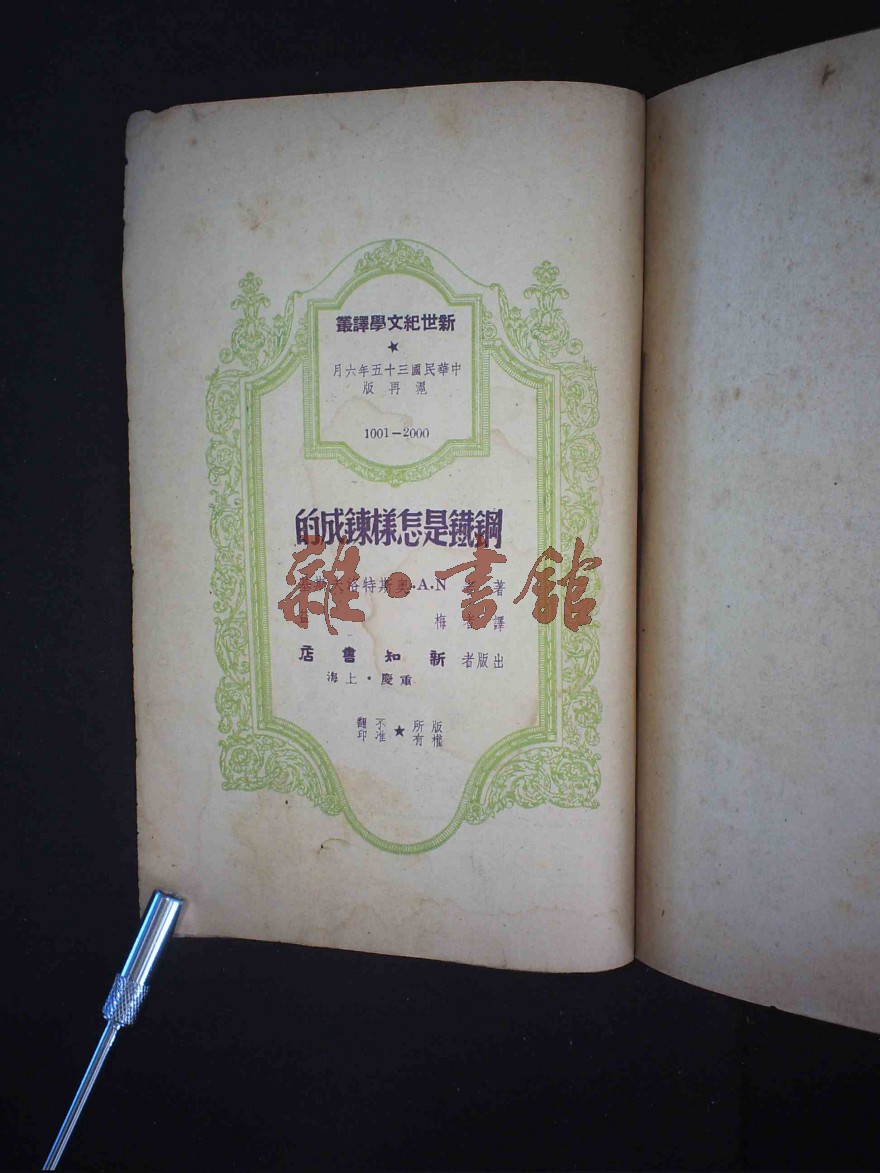 新世紀文學譯叢
★
中華民國三十五年六月
滬再版
1001—2000
鋼鐵是怎樣鍊成的
著者 N.A.奧斯特洛夫斯基
譯者 梅
出版者 新知書店
重慶・上海
版權所有 ★ 不准翻印
雜・書館